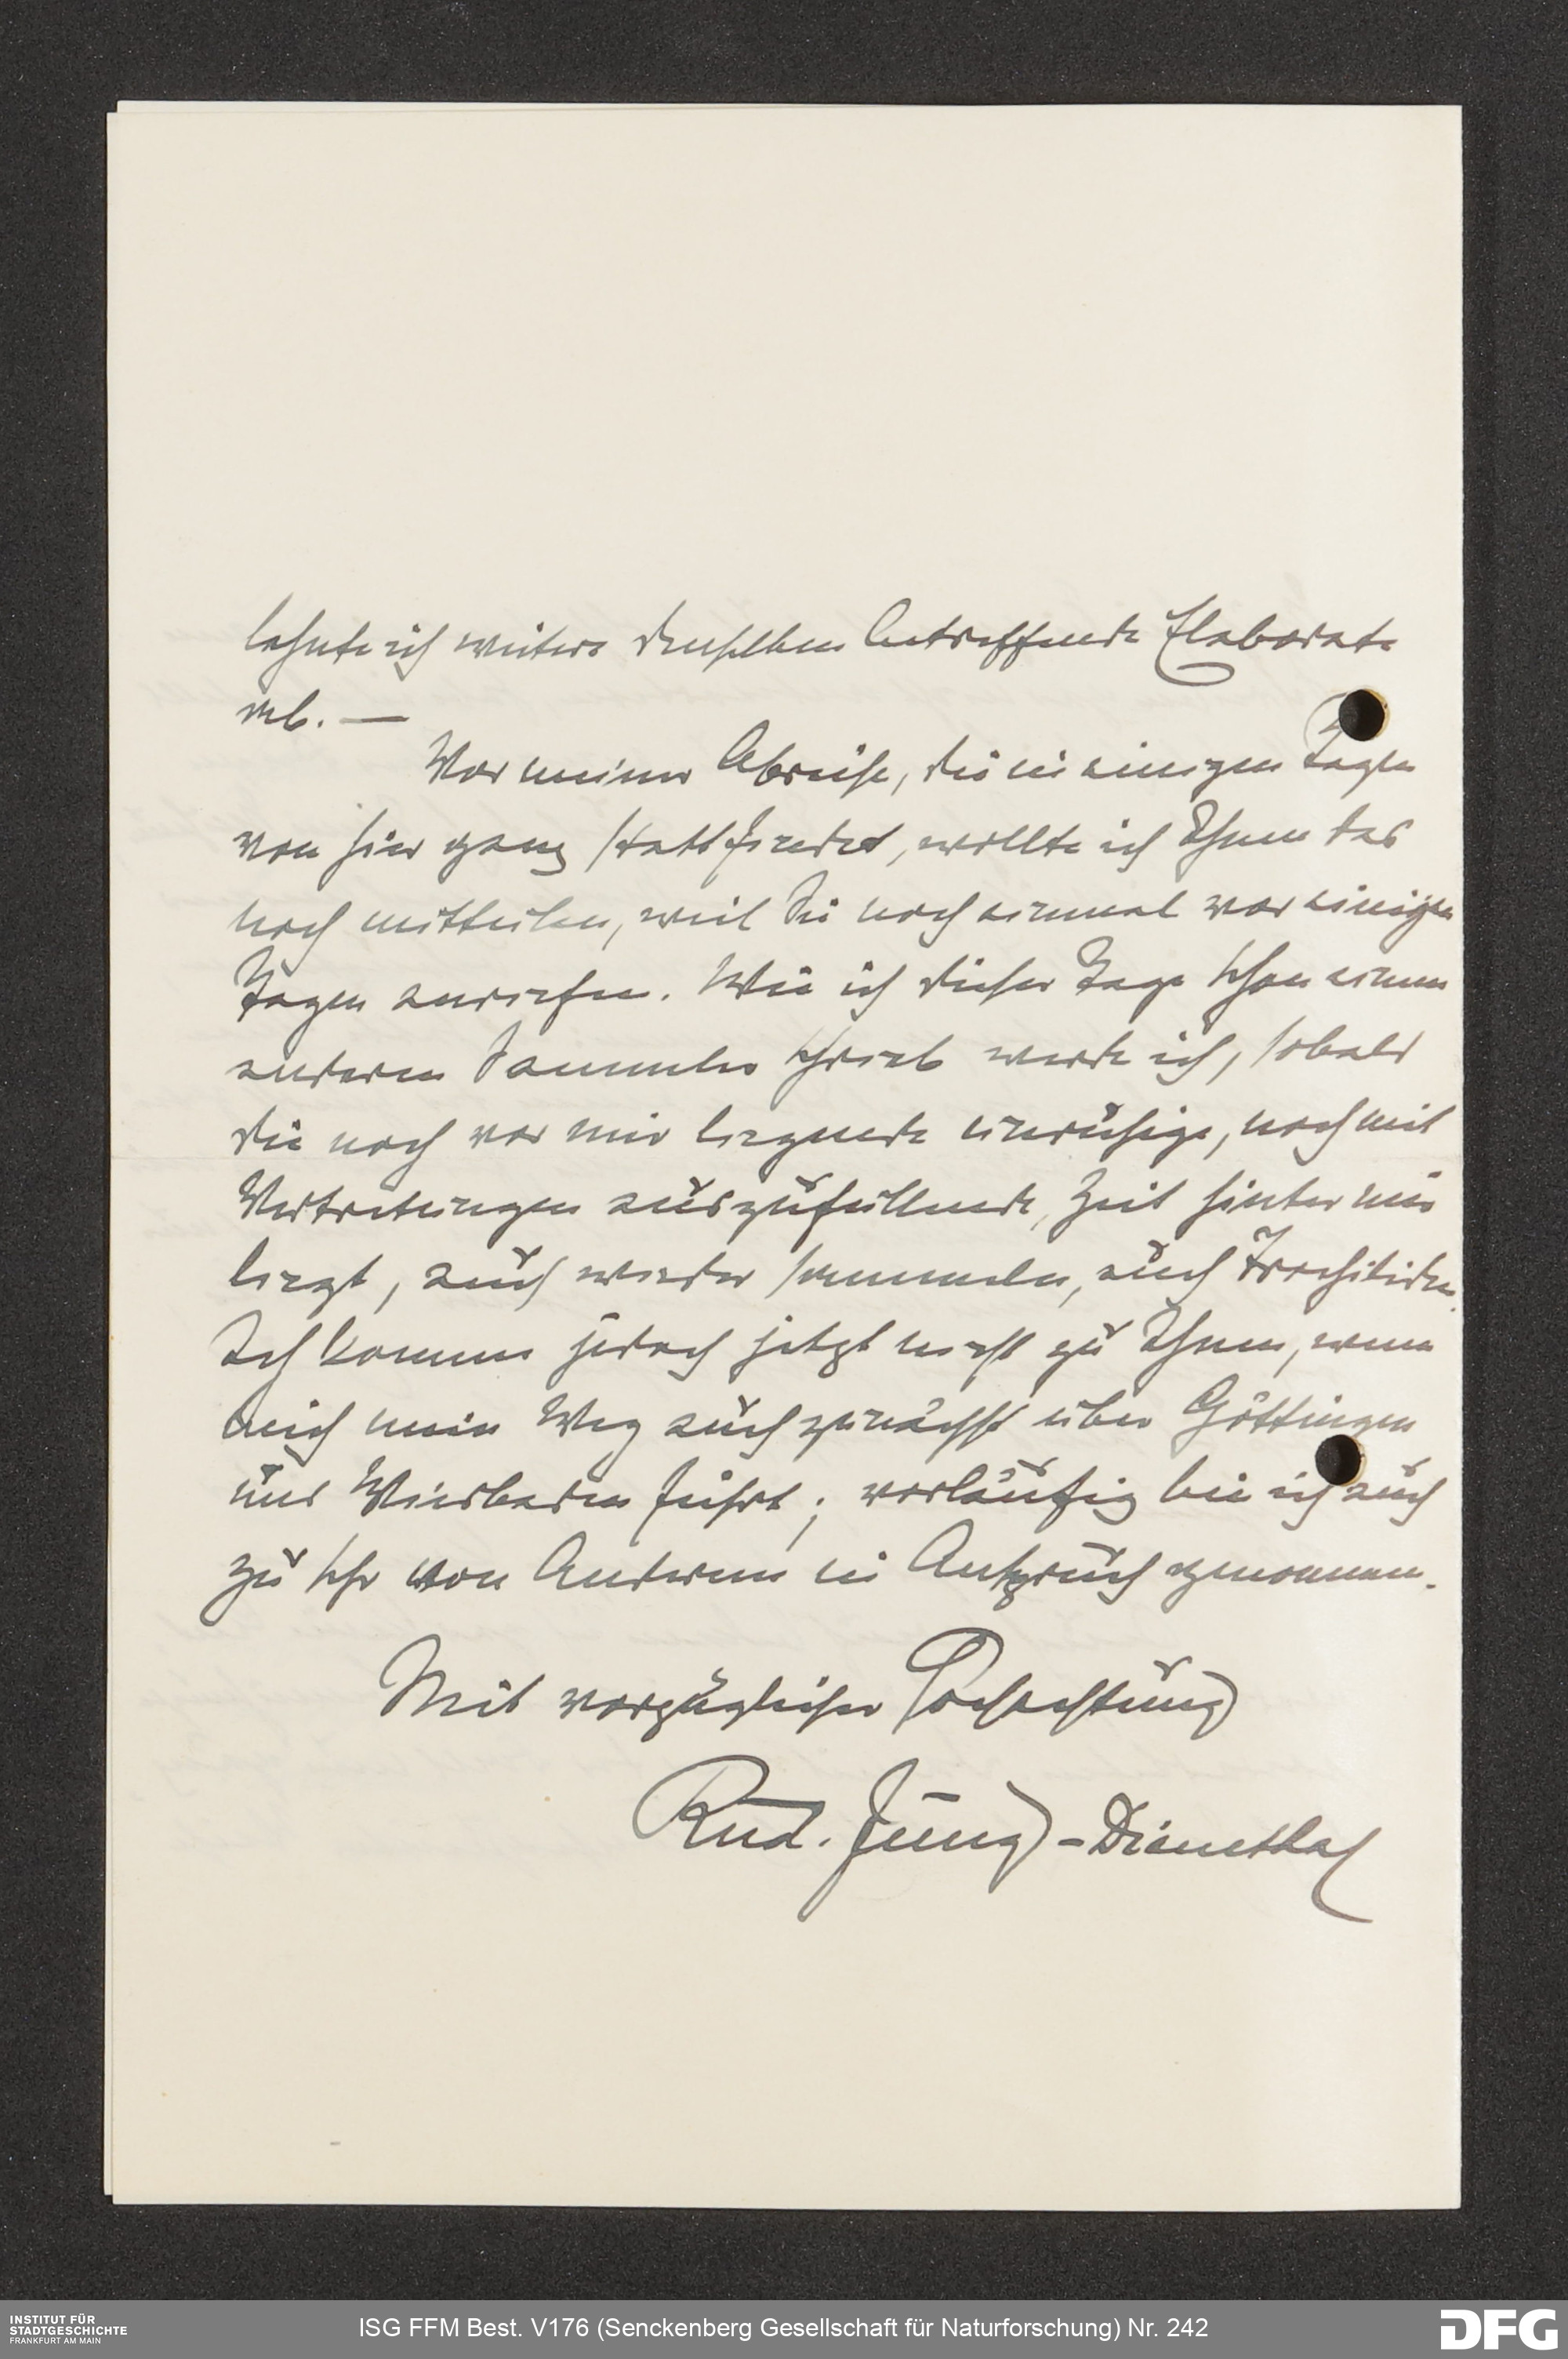 lehnte ich weitere denselben betreffende Elaborate
ab. —
Vor meiner Abreise, die in einigen Tagen
von hier ganz stattfindet, wollte ich Ihnen das
noch mitteilen, weil Sie noch einmal vor einigen
Tagen anriefen. Wie ich dieser Tage schon einem
anderen Sammler schrieb werde ich, sobald
die noch vor mir liegende unruhige, noch mit
Vertretungen auszufüllende, Zeit hinter mir
liegt, auch wieder sammeln, auch Trochiliden.
Ich komme jedoch jetzt nicht zu Ihnen, wenn
mich mein Weg auch zunächst über Göttingen
und Wiesbaden führt; vorläufig bin ich auch
zu sehr von Anderem in Anspruch genommen.
Mit vorzüglicher Hochachtung
Rud. Jung - Dienethal
INSTITUT FÜR
STADTGESCHICHTE
FRANKFURT AM MAIN
ISG FFM Best. V176 (Senckenberg Gesellschaft für Naturforschung) Nr. 242
DFG